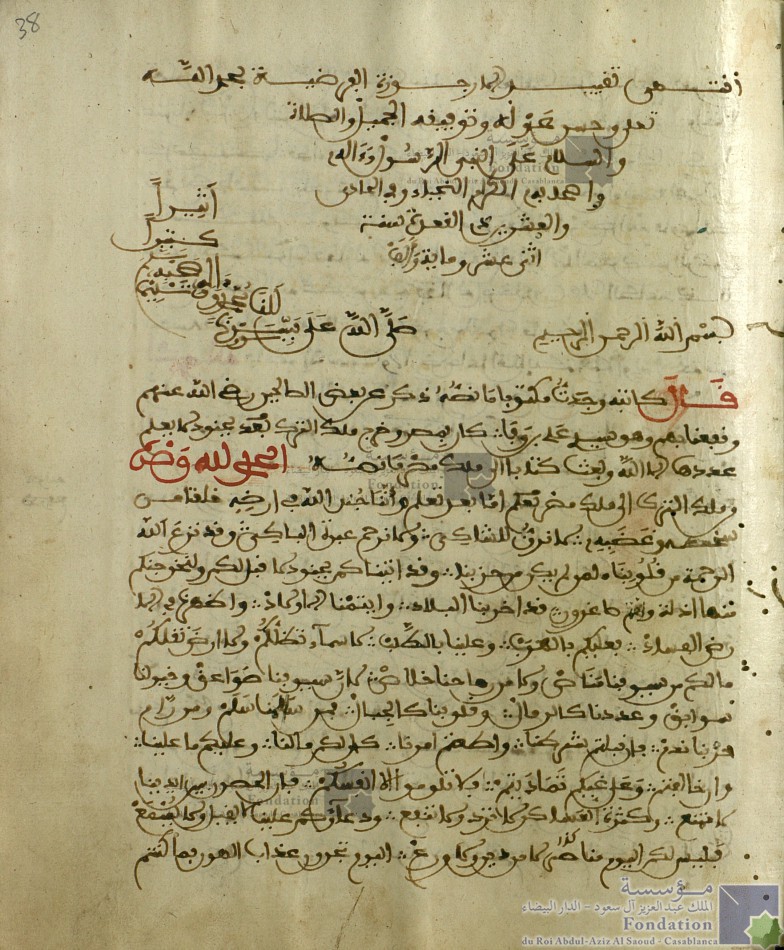 38
انتهى تقييد الارجوزة العرضية بحمد الله
تعلى وحسن عونه وتوفيقه الجميل والصلاة
والسلام على النبي الرسول وءاله
واصحابه الكرام النجباء وفي الحادي
والعشرين من القعدة سنة
اثنى عشر وماية والف
اثيرا
كثيرا
بسم الله الرحمن الرحيم صلى الله على
قال كاتبه وجدت مكتوبا ما نصه ذكر عن بعض الصالحين رضي الله عنهم
ونفعنا بهم وهو سيد كان بمصر وخرج ملك الترك بجنود لا يعلم
عددها الا الله وبعث كتابا الى ملك مصر ما نصه الحمد لله
ملك الترك الى ملك مصر اما بعد تعلم وأننا جند الله في ارضه خلقنا من
سخطه وغضبه لا نرق للشاكي ولا نرحم عبرة الباكي وقد نزع الله
الرحمة من قلوبنا لمن لم يكن من حزبنا وقد اتيناكم بجنود لا قبل لكم ولنخرجنكم
منها اذلة وانتم صاغرون قد اخربنا البلاد وايتمنا الاولاد واظهرنا في الا
رض الفساد فعليكم بالهرب وعلينا بالطلب لا سماء تظلكم ولا ارض تقلكم
ما لكم من سيوفنا مناص ولا من رماحنا خلاص لان سيوفنا صواعق وخيولنا
سوابق وعددنا كالرمال وقلوبنا كالجبال فمن سالمنا سلم ومن رام
حربنا ندم فان قبلتم شرطنا واطعتم امرنا كان لكم ما لنا وعليكم ما علينا
وان خالفتم وعلى غيكم تماديتم فلا تلوموا الا انفسكم فان الحصون بين ايدينا
لا تمنع وكثرة العساكر لا ترد ولا تنفع ودعاؤكم علينا لا يقبل ولا يسمع
فليس لكم اليوم مناص اليوم تجزون عذاب الهون بما كنتم
مؤسسة
الملك عبد العزيز آل سعود - الدار البيضاء
Fondation
du Roi Abdul-Aziz Al Saoud - Casablanca